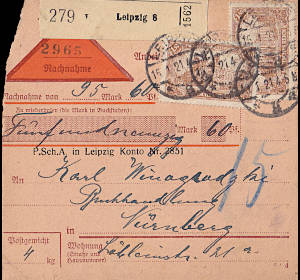 279 v Leipzig 6 1562
2965
Nachnahme
Nachnahme von 95 M 60 Pf.
(die Mark in Buchstaben)
Fünfundneunzig Mark 60 Pf.
P.Sch.A. in Leipzig Konto Nr. 2851
An Karl
Buchhandlung
in Nürnberg
Postgewicht
4 kg
Wohnung
(Straße und Hausnummer)